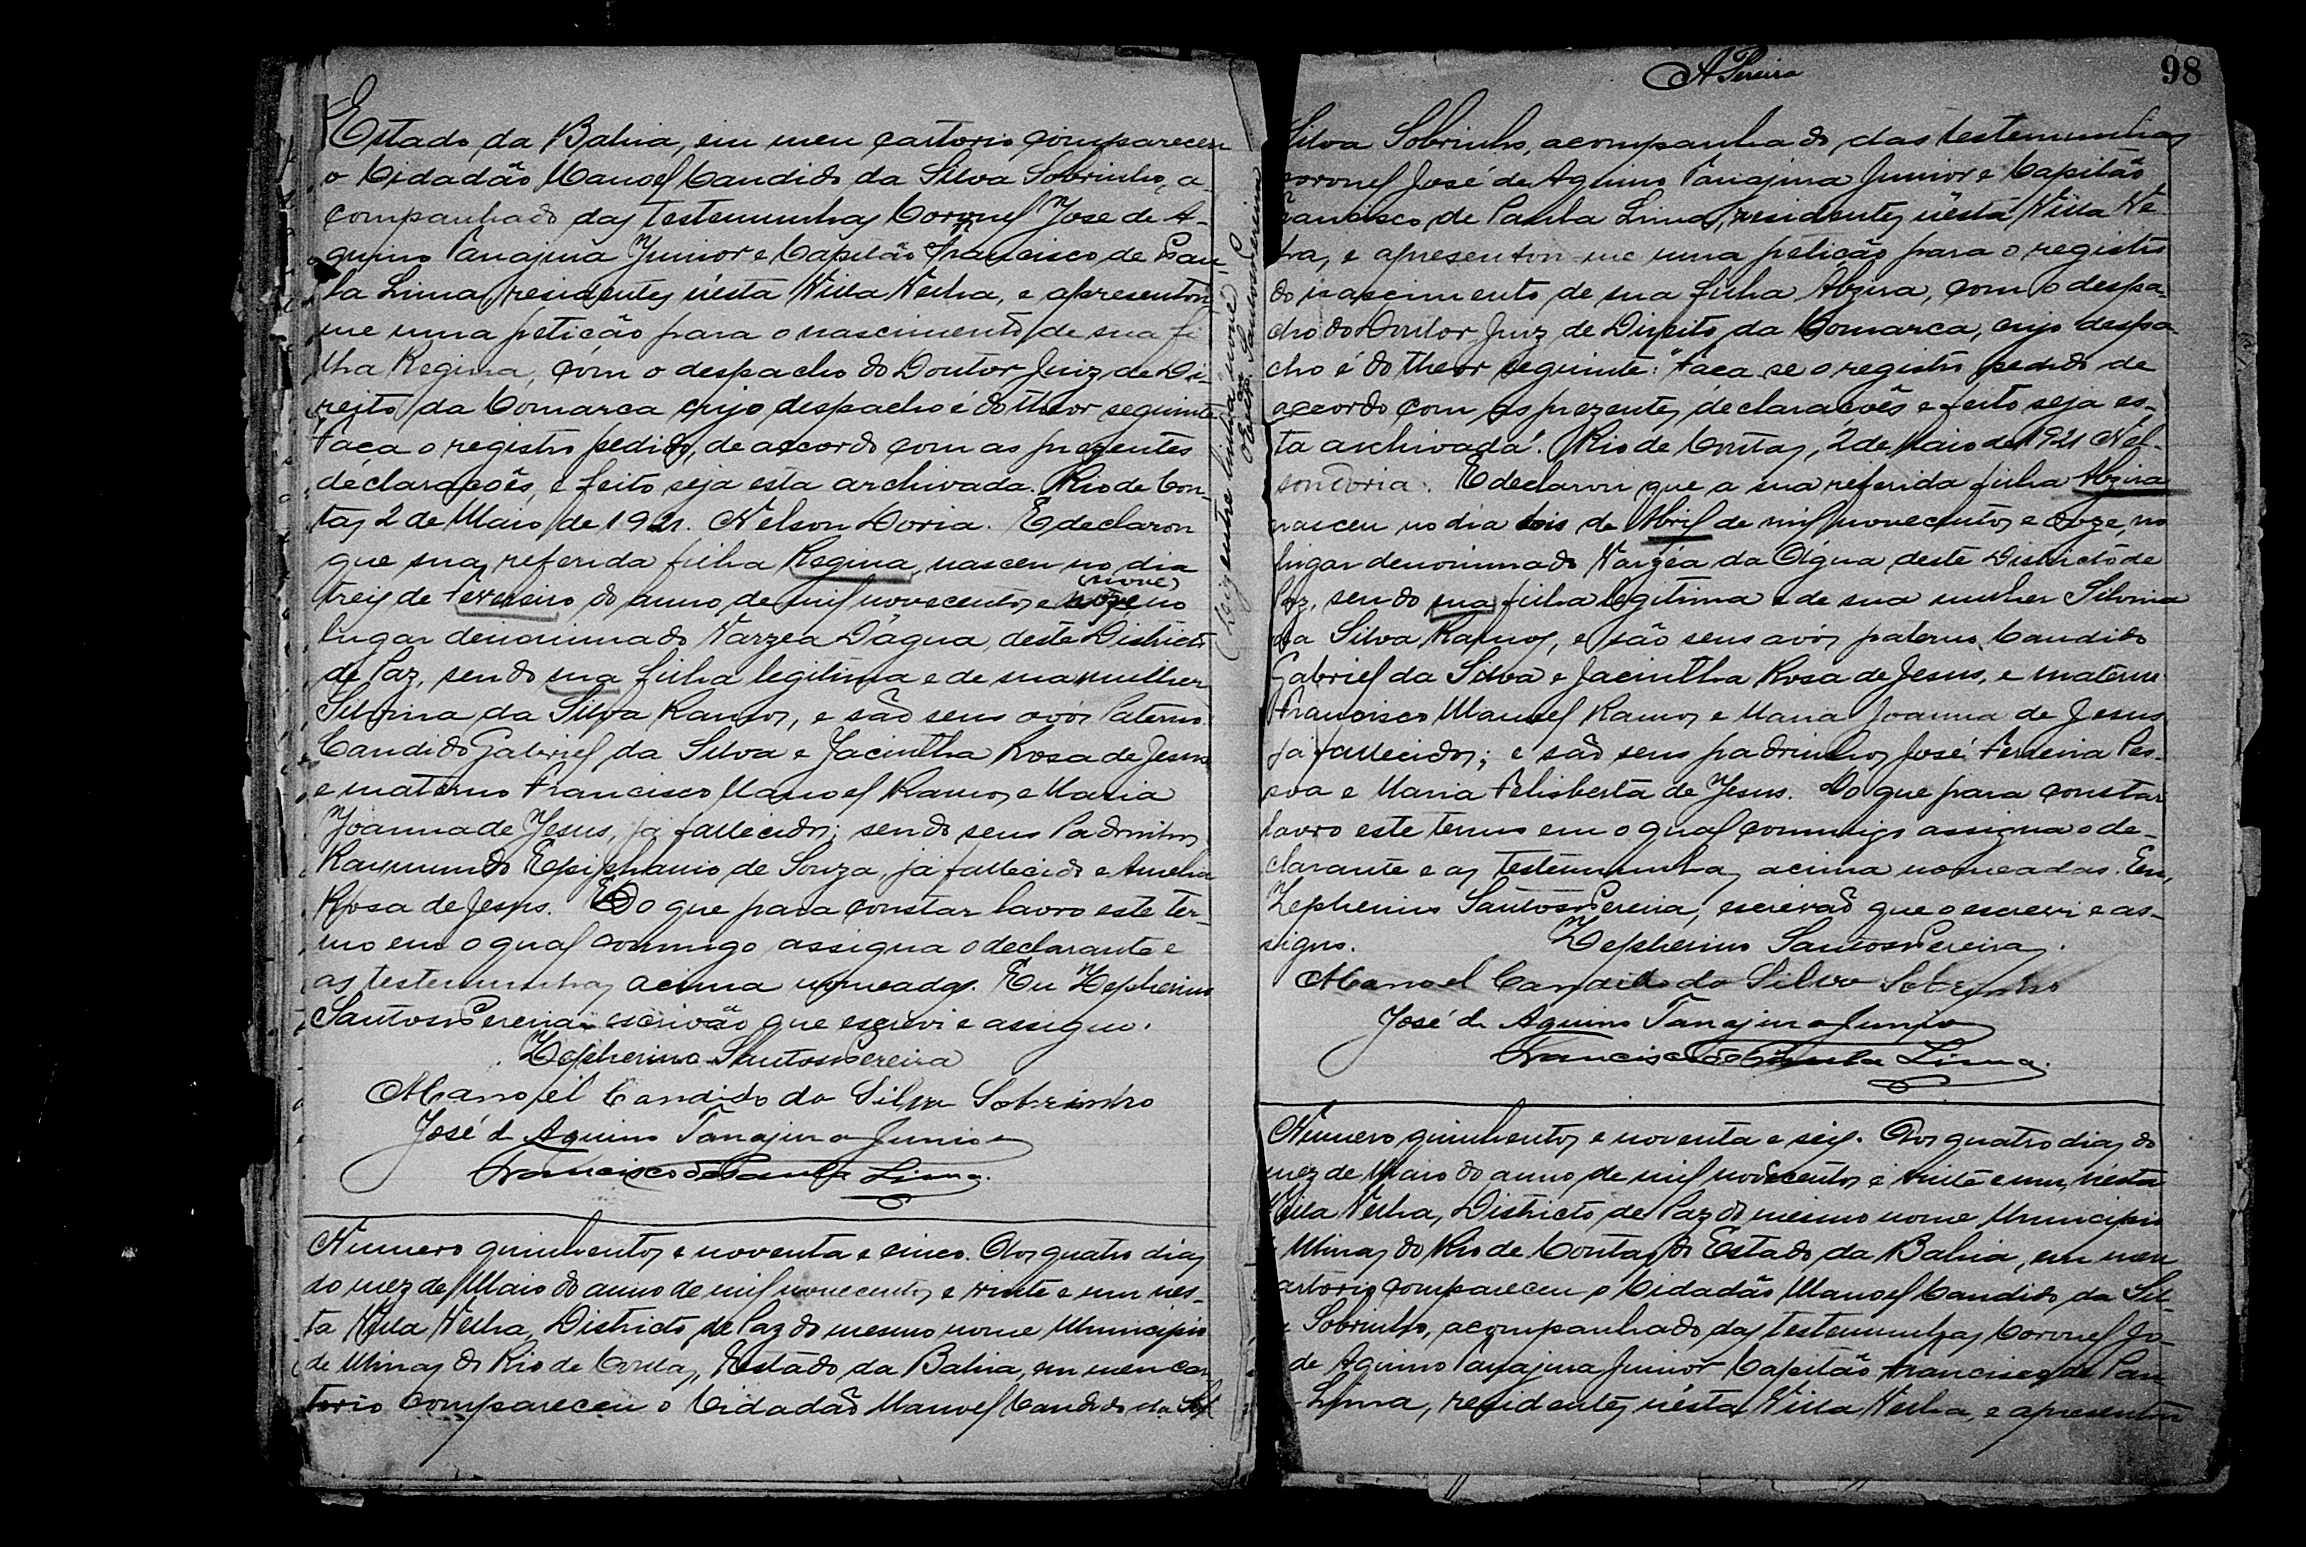 Estado da Bahia, em meu cartorio compareceu
o Cidadão Manoel Candido da Silva Sobrinho, a-
companhado das testemunhas Coronel José de A-
quino Tanajura Junior e Capitão Francisco de Pau-
la Lima, residentes n'esta Villa Velha, e apresentou
me uma petição para o nascimento de sua fi
lha Regina, com o despacho do Doutor Juiz de Di-
reito da Comarca cujo despacho é do theor seguinte
Faça o registro pedido, de accordo com as prezentes
declaraçoẽs, e feito seja esta archivada. Rio de Con-
tas 2 de Maio de 1921. Nelson Doria. E declarou
que sua referida filha Regina, nasceu no dia
treis de Fevereiro do anno de mil novecentos e (nove) no
lugar denominado Varzea D'agua, deste Districto
de Paz, sendo sua filha legitima e de sua mulher
Silvina da Silva Ramos, e são seus avós Paterno
Candido Gabriel da Silva e Jacintha Rosa de Jesus
e materno Francisco Manoel Ramos e Maria
Joanna de Jesus, já fallecidos; sendo seus Padrinhos
Raymundo Epiphanio de Souza, já fallecido e Amelia
Rosa de Jesus. Do que para constar lavro este ter-
mo em o qual commigo assigna o declarante e
as testemunhas acima nomeadas. Eu Zepherino
Santos Pereira escrivão que escrevi e assigno.
Zepherino Santos Pereira
Manoel Candido da Silva Sobrinho
José de Aquino Tanajura Junior
Francisco de Paula Lima.
Numero quinhentos e noventa e cinco. Aos quatro dias
do mez de Maio do anno de mil novecentos e vinte e um nes-
ta Villa Velha, Districto de Paz do mesmo nome Municipio
de Minas do Rio de Contas, Estado da Bahia, em meu car-
torio compareceu o Cidadão Manoel Candido da Sil
entre linha nove
Santos Pereira
A Pereira
98
Silva Sobrinho, acompanhado, das testemunhas
Coronel José de Aquino Tanajura Junior e Capitão
Francisco de Paula Lima, residentes n'esta Villa Ve-
lha, e apresentou-me uma petição para o registro
do nascimento de sua filha Abzira, com o despa-
cho do Doutor Juiz de Direito da Comarca, cujo despa-
cho é do theor seguinte: "Faça-se o registro pedido de
accordo com as prezentes declaraçoẽs e feito seja es-
ta archivada". Rio de Contas, 2 de Maio de 1921 Nel-
son Doria. E declarou que a sua referida filha Abzira
nasceu no dia dois de Abril de mil novecentos e doze, no
lugar denominado Varzéa da Agua deste Districto de
Paz, sendo sua filha legitima e de sua mulher Silvina
da Silva Ramos, e são seus avós paterno Candido
Gabriel da Silva e Jacintha Rosa de Jesus, e materno
Francisco Manoel Ramos e Maria Joanna de Jesus
já fallecidos; e são seus padrinhos José Ferreira Pes-
soa e Maria Felisberta de Jesus. Do que para constar
lavro este termo em o qual commigo assigna o de-
clarante e as testemunhas acima nomeadas. Eu,
Zepherino Santos Pereira, escrivão que o escrevi e as-
signo. Zepherino Santos Pereira.
Manoel Candido da Silva Sobrinho
José de Aquino Tanajura Junior
Francisco de Paula Lima.
Numero quinhentos e noventa e seis. Aos quatro dias do
mez de Maio do anno de mil novecentos e vinte e um, n'esta
Villa Velha, Districto de Paz do mesmo nome Municipio
Minas do Rio de Contas do Estado da Bahia, em meu
artorio compareceu o Cidadão Manoel Candido da Sil-
Sobrinho, acompanhado das testemunhas Coronel Jo-
de Aquino Tanajura Junior Capitão Francisco de Pau
Lima, residentes n'esta Villa Velha, e apresentou